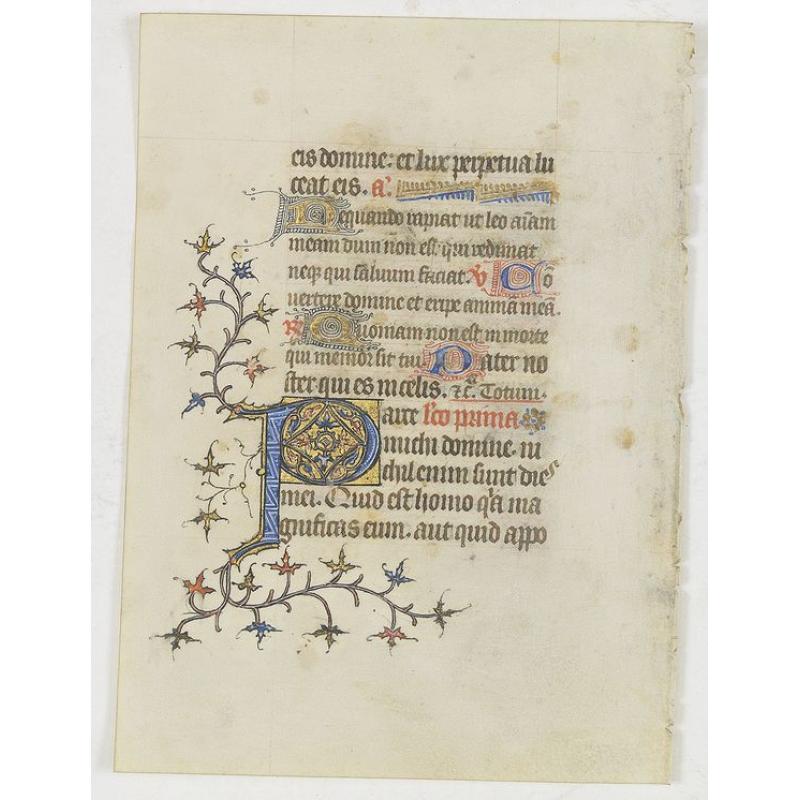 eis domine: et lux perpetua lu
ceat eis. a'.
Nequando rapiat ut leo aīam
meam dum non est qui redimat
neq; qui saluum faciat. V Cō
uertere domine et eripe animā meā.
R Quoniam non est in morte
qui memor sit tui Pater no
ster qui es in celis. ⁊c̄. Totum.
Parce lc̄o prima
michi domine. ni
chil enim sunt dies
mei. Quid est homo q̄a ma
gnificas eum. aut quid appo